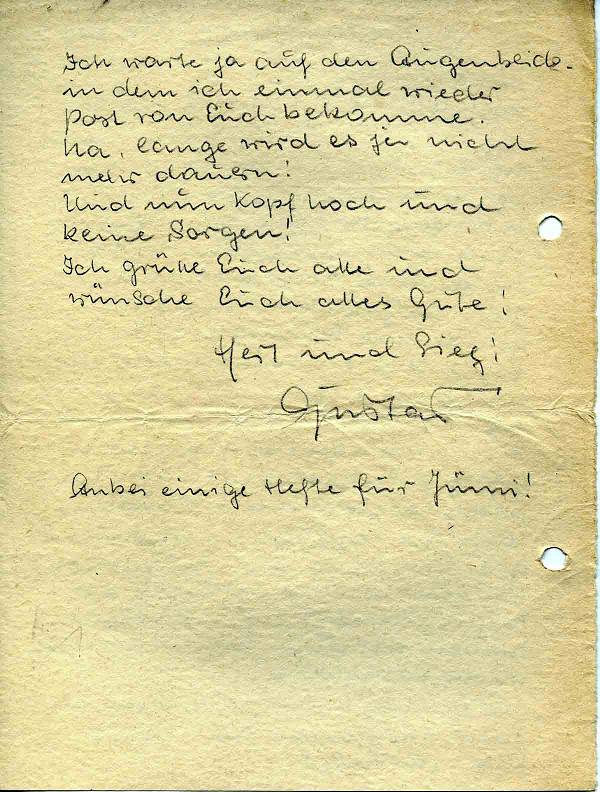 Ich warte ja auf den Augenblick,
in dem ich einmal wieder
Post von Euch bekomme.
Na, lange wird es ja nicht
mehr dauern!
Und nun Kopf hoch und
keine Sorgen!
Ich grüße Euch alle und
wünsche Euch alles Gute!
Heil und Sieg!
Gustav
Anbei einige Hefte für